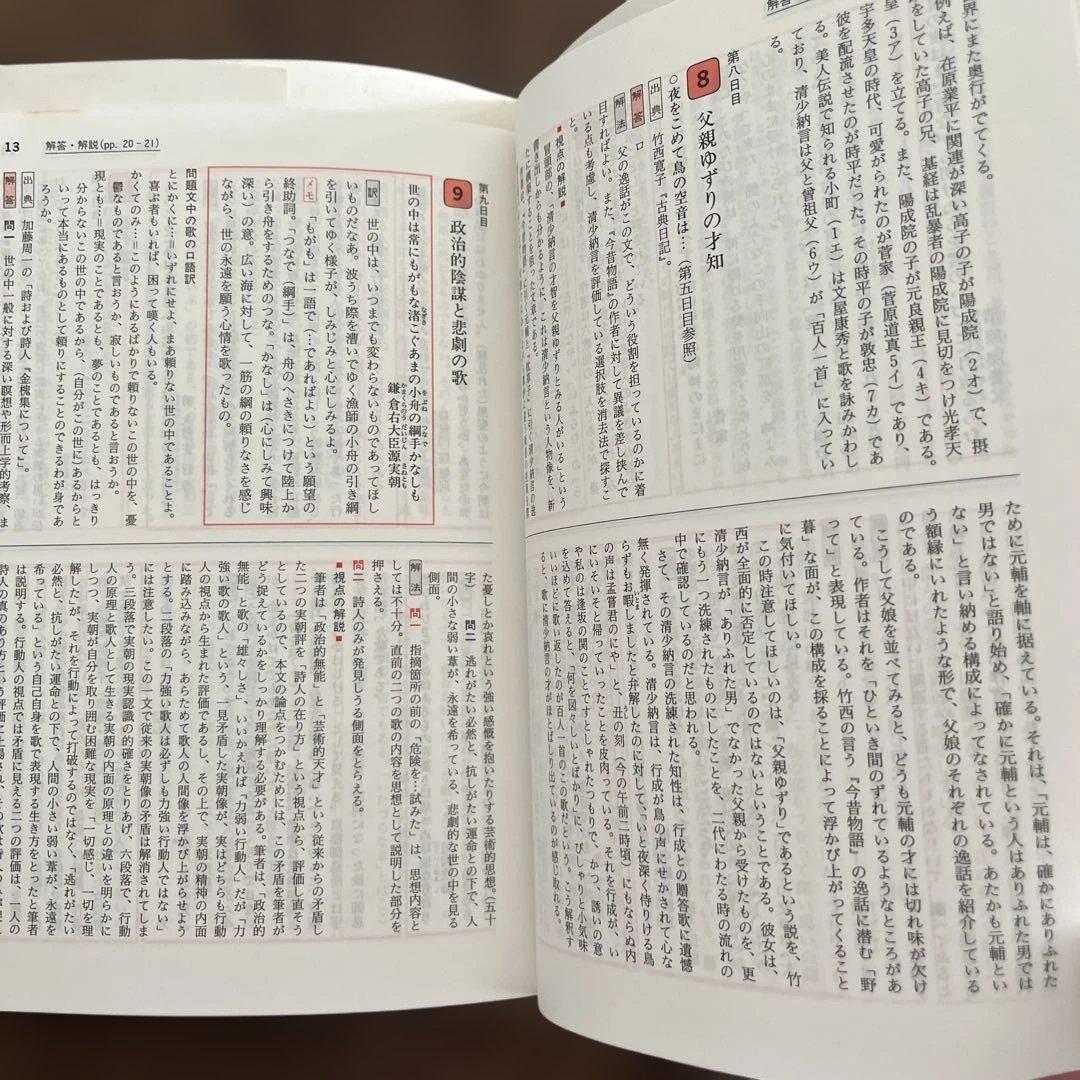 解答・
界にまた奥行がでてくる。
例えば、在原業平に関連が深い高子の子が陽成院（2オ）で、摂
をしていた高子の兄、基経は乱暴者の陽成院に見切をつけ光孝天
皇（3ア）を立てる。また、陽成院の子が元良親王（4キ）である。
宇多天皇の時代、可愛がられたのが菅家（菅原道真5イ）であり、
彼を配流させたのが時平だった。その時平の子が敦忠（7カ）であ
る。美人伝説で知られる小町（1エ）は文屋康秀と歌を詠みかわし
ており、清少納言は父と曽祖父（6ウ）が「百人一首」に入ってい
る。
第八日目
8 父親ゆずりの才知
○夜をこめて鳥の空音は…（第五日目参照）
出典 竹西寛子『古典日記』。
解答 ロ
解法 父の逸話がこの文で、どういう役割を担っているのかに着
目すればよい。また、『今昔物語』の作者に対して異議を差し挟んで
いる点も考慮し、清少納言を評価している選択肢を消去法で探すこ
と。
■視点の解説■
冒頭部の、「清少納言の才智を父親ゆずりとみる人がいる」という
書き出しからも分かるように、これは清少納言という人物像を、新
ために元輔を軸に据えている。それは、「元輔は、確かにありふれた
男ではない」と語り始め、「確かに元輔という人はありふれた男では
ない」と言い納める構成によってなされている。あたかも元輔とい
う額縁にいれたような形で、父娘のそれぞれの逸話を紹介している
のである。
こうして父娘を並べてみると、どうも元輔の才には切れ味が欠け
ている。作者はそれを「ひといき間のずれているようなところがあ
って」と表現している。竹西の言う『今昔物語』の逸話に潜む「野
暮」な面が、この構成を採ることによって浮かび上がってくること
に気付いてほしい。
この時注意してほしいのは、「父親ゆずり」であるという説を、竹
西が全面的に否定しているのではないということである。彼女は、
清少納言が「ありふれた男」でなかった父親から受けたものを、更
にもう一つ洗練されたものにしたことを、二代にわたる時の流れの
中で確認しているのだと思われる。
さて、その清少納言の洗練された知性は、行成との贈答歌に遺憾
無く発揮されている。清少納言は、行成が鳥の声にせかされて心な
らずもお暇しましたと弁解したのに対して、「いと夜深く侍りける鳥
の声は孟嘗君のにや」と、丑の刻（今の午前二時頃）にもならぬ内
にいそいそと帰っていったことを皮肉っている。それを行成が、い
や私のは逢坂の関のことですとしゃれたつもりで、かつ、誘いの意
を込めて答えると、「何を図々しい」とばかりに、ぴしゃりと小気味
いいほどに歌い返したのが百人一首のこの歌だという。こう解釈す
ると、歌に清少納言の才がほとばしり出ているのが感じ取れる。
13 解答・解説(pp. 20–21)
第九日目
9 政治的陰謀と悲劇の歌
世の中は常にもがもな渚こぐあまの小舟の綱手かなしも
鎌倉右大臣源実朝
訳 世の中は、いつまでも変わらないものであってほし
いものだなあ。波うち際を漕いでゆく漁師の小舟の引き綱
を引いてゆく様子が、しみじみと心にしみる。
メモ 「もがも」は一語で（…であればよい）という願望の
終助詞。「つなで（綱手）」は、舟のへさきにつけて陸上か
ら引き舟をするためのつな。「かなし」は（心にしみて興味
深い）の意。広い海に対して、一筋の綱の頼りなさを感じ
ながら、世の永遠を願う心情を歌ったもの。
問題文中の歌の口語訳
とにかくに…＝いずれにせよ、まあ頼りない世の中であることよ。
喜ぶ者もいれば、困って嘆く人もいる。
かくてのみ…＝このようにあるばかりで頼りないこの世の中を、憂
鬱なものであると言おうか、寂しいものであると言おうか。
現とも…＝現実のことであるとも、夢のことであるとも、はっきり
分からないこの世の中であるから、（自分がこの世に）あるからと
いって本当にあるものとして頼りにすることのできるわが身であ
ろうか。
出典 加藤周一の「詩および詩人『金槐集について』」。
解答 問一 世の中一般に対する深い瞑想や形而上学的考察、ま
た憂しとか哀れという強い感慨を抱いたりする芸術的思想。（五十
字） 問二 逃れがたい必然と、抗しがたい運命との下で、人
間の小さな弱い葦が、永遠を希っている、悲劇的な世の中を見る
側面。
解法 問一 指摘箇所の前の「危険を…試みた」は、思想内容と
しては不十分。直前の二つの歌の内容を思想として説明した部分を
押さえる。
問二 詩人のみが発見しうる側面をとらえる。
■視点の解説■
筆者は「政治的無能」と「芸術的天才」という従来からの矛盾し
た二つの実朝評を「詩人の在り方」という視点から、評価し直そう
としているので、本文の論点をつかむためには、この矛盾を筆者が
どう捉えているかをしっかり理解する必要がある。筆者は、「政治的
無能」と歌の「雄々しさ」、いいかえれば「力弱い行動人」だが「力
強い歌の歌人」という、一見矛盾した実朝像が、実はどちらも行動
人の視点から生まれた評価であるし、その上で、実朝の精神の内面
に踏み込みながら、あらためて歌人の人間像を浮かび上がらせよう
とする。二段落の「力強い歌人は必ずしも力強い行動人ではない」
には注意したい。この一文で従来の実朝像の矛盾は解消されてしま
う。三段落で実朝の現実認識の的確さをとりあげ、六段落で、行動
人の原理と歌人として生きる実朝の内面の原理との違いを明らかに
しつつ、実朝が自分を取り囲む困難な現実を「一切感じ、一切を理
解した」が、それを行動によって打破するのではなく、「逃れがたい
必然と、抗しがたい運命との下で、人間の小さい弱い葦が、永遠を
希っている」という自己自身を歌で表現する生き方をとったと筆者
は説明する。行動人の視点では矛盾に見える二つの評価は、一人の